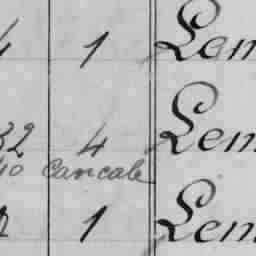 4 1 Lem
32 4 Lem
40 Cancale
1 Lem